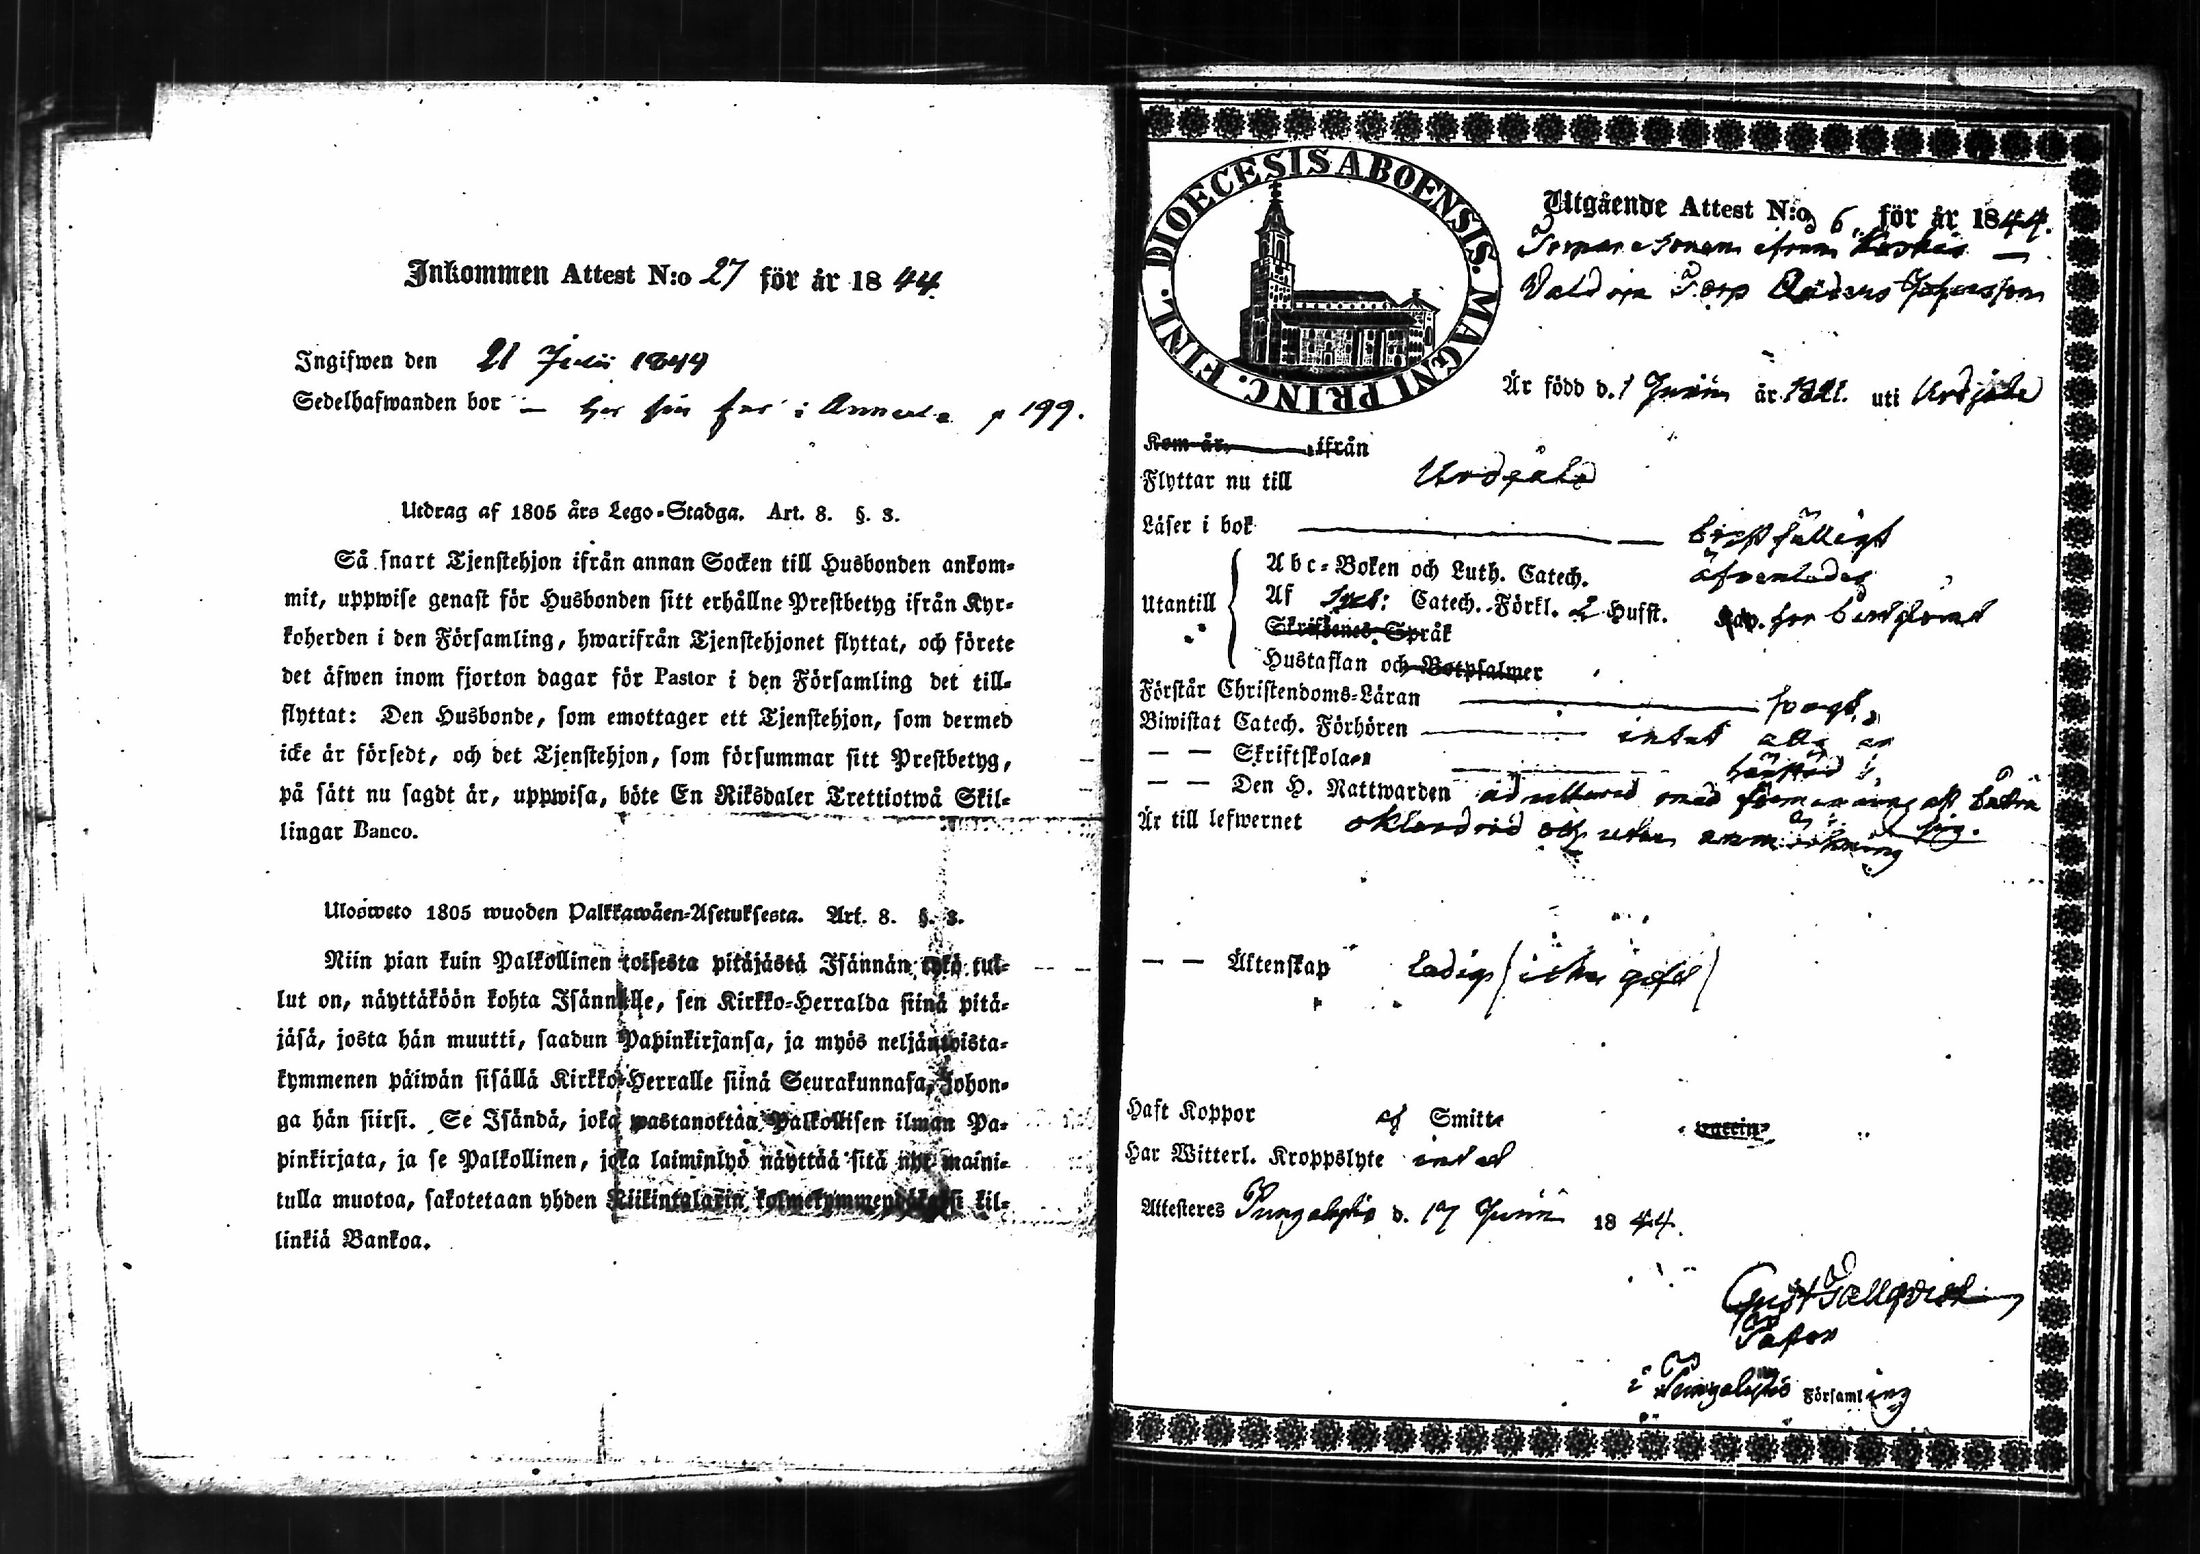 Inkommen Attest N:o 27 för år 1844.
Ingifwen den 21 Julii 1844
Sedelhafwanden bor — hos sin far i Annula p 199.
Utdrag af 1805 års Lego-Stadga. Art. 8. §. 3.
Så snart Tjenstehjon ifrån annan Socken till Husbonden ankom-
mit, uppwise genast för Husbonden sitt erhållne Prestbetyg ifrån Kyr-
koherden i den Församling, hwarifrån Tjenstehjonet flyttat, och förete
det äfwen inom fjorton dagar för Pastor i den Församling det till-
flyttat: Den Husbonde, som emottager ett Tjenstehjon, som dermed
icke är försedt, och det Tjenstehjon, som försummar sitt Prestbetyg,
på sätt nu sagdt är, uppwisa, böte En Riksdaler Trettiotwå Skil-
lingar Banco.
Ulosweto 1805 wuoden Palkkawäen-Asetuksesta. Art. 8. §. 3.
Niin pian kuin Palkollinen toisesta pitäjästä Isännän tykö tul-
lut on, näyttäköön kohta Isännälle, sen Kirkko-Herralda siinä pitä-
jäsä, josta hän muutti, saadun Papinkirjansa, ja myös neljäntoista-
kymmenen päiwän sisällä Kirkko-Herralle siinä Seurakunnasa, Johon-
ga hän siirsi. Se Isändä, joka wastanottaa Palkollisen ilman Pa-
pinkirjata, ja se Palkollinen, joka laiminlyö näyttää sitä nyt maini-
tulla muotoa, sakotetaan yhden Riikintalarin kolmekymmendäkaksi kil-
linkiä Bankoa.
DIOECESIS ABOENSIS. MAGNI PRINC. FINL.
Utgående Attest N:o 6. för år 1844.
Torpare sonen ifrån
Torp
Är född d. 1 Junii år 1821. uti Urdjala
Kom år ifrån
Flyttar nu till Urdjala
Läser i bok bristfälligt
Utantill
Abc-Boken och Luth. Catech. äfvenledes
Af Catech. Förkl. 2 Hufst.
Skriftenes Språk
Hustaflan och Botpsalmer
Förstår Christendoms-Läran svagt
Biwistat Catech. Förhören intet
— — Skriftskolan
— — Den H. Nattwarden admitterad med förmaning att bättra sig.
Är till lefwernet oklandrad och utan anmärkning
— — Äktenskap Ledig (icke gift)
Haft Koppor af Smitte vaccin
Har Witterl. Kroppslyte intet
Attesteres Pungalaitio d. 17 Junii 1844.
Gust
Pastor
i Pungalaitio Församling